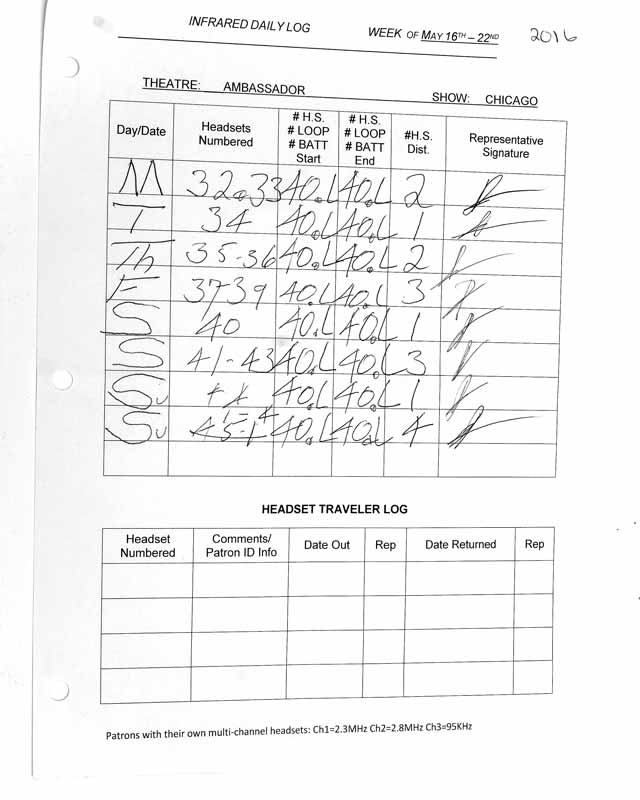 INFRARED DAILY LOG WEEK OF MAY 16TH – 22ND 2016
THEATRE: AMBASSADOR SHOW: CHICAGO
Day/Date Headsets Numbered # H.S. # LOOP # BATT Start # H.S. # LOOP # BATT End #H.S. Dist. Representative Signature
M 32-33 40.L 40.L 2
T 34 40.L 40.L 1
Th 35-36 40.L 40.L 2
F 37-39 40.L 40.L 3
S 40 40.L 40.L 1
S 41-43 40.L 40.L 3
Su 44 40.L 40.L 1
Su 1-4 40.L 40.L 4
HEADSET TRAVELER LOG
Headset Numbered Comments/ Patron ID Info Date Out Rep Date Returned Rep
Patrons with their own multi-channel headsets: Ch1=2.3MHz Ch2=2.8MHz Ch3=95KHz